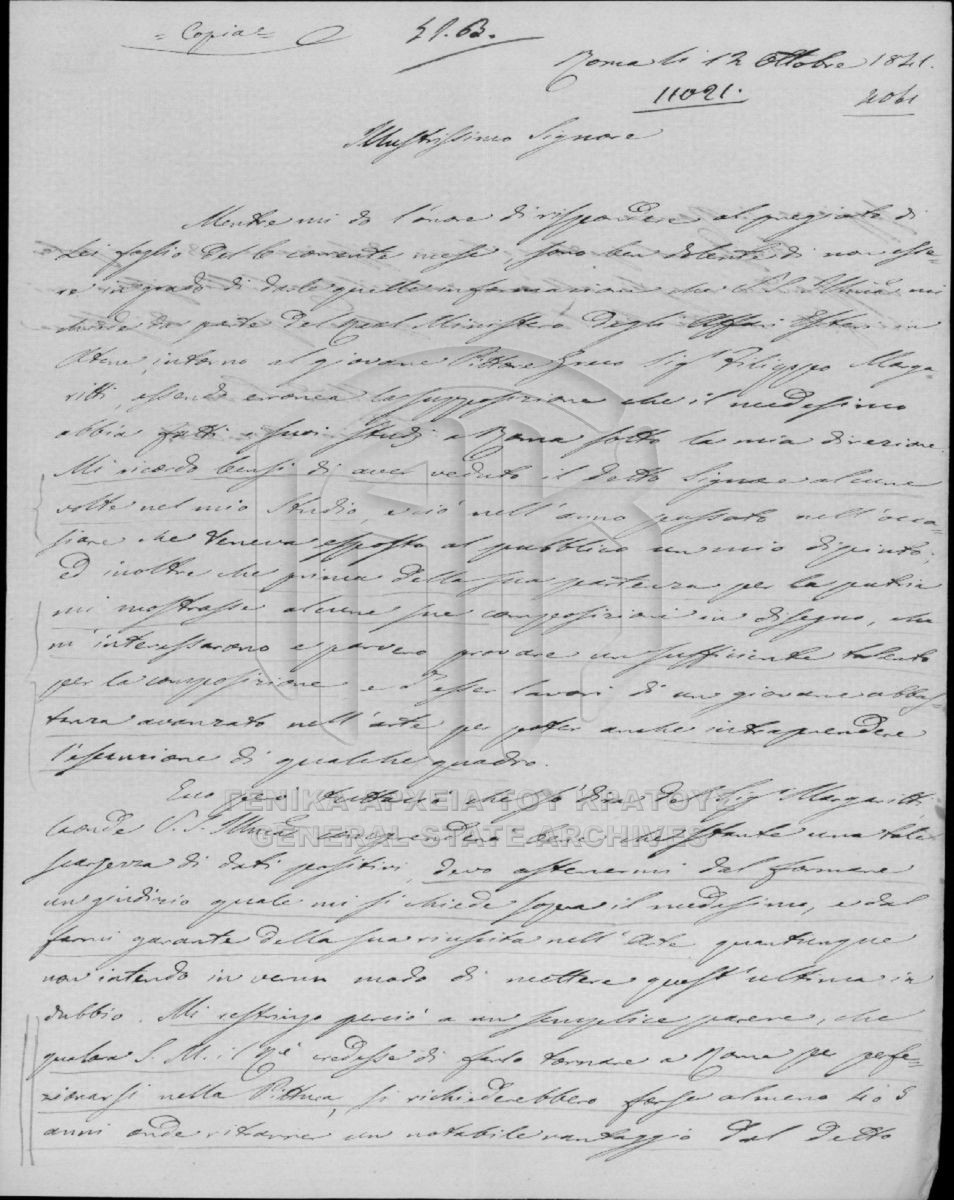 = Copia =
Roma li 12 Ottobre 1841.
11021.
Illustrissimo Signore
Mentre mi do l'onore di rispondere al pregiato di
Lei foglio del 6 corrente mese, sono ben dolente di non esse-
re in grado di darle quelle informazioni che S. S. Illma mi
chiede per parte del Real Ministero degli Affari Esteri in
Atene, intorno al giovane Pittore Greco Sigr Filippo Marga-
ritti, essendo erronea la supposizione che il medesimo
abbia fatti i suoi studj a Roma sotto la mia direzione.
Mi ricordo bensi di aver veduto il detto Signore alcune
volte nel mio Studio, e ciò nell'anno passato nell'occa-
sione che teneva esposto al pubblico un mio dipinto;
ed inoltre che prima della sua partenza per la patria
mi mostrasse alcune sue composizioni in disegno, che
m'interessarono e parvero provare un sufficiente talento
per la composizione e d'esser lavori di un giovane abbas-
tanza avanzato nell'arte per poter anche intraprendere
l'esecuzione di qualche quadro.
Ecco però tutto ciò che del Sigr Margaritti
laonde V. S. Illma comprenderà bene che stante una tale
scarsezza di dati positivi, devo astenermi dal formare
un giudizio quale mi si chiede sopra il medesimo, e dal
farmi garante della sua riuscita nell'Arte quantunque
non intendo in verun modo di mettere quest'ultima in
dubbio. Mi restringo perciò a un semplice parere, che
qualora S. M. il Rè credesse di farlo tornare a Roma per perfe-
zionarsi nella Pittura, si richiederebbero forse almeno 4 o 5
anni onde ritrarre un notabile vantaggio dal detto
ΓΕΝΙΚΑ ΑΡΧΕΙΑ ΤΟΥ ΚΡΑΤΟΥΣ
GENERAL STATE ARCHIVES